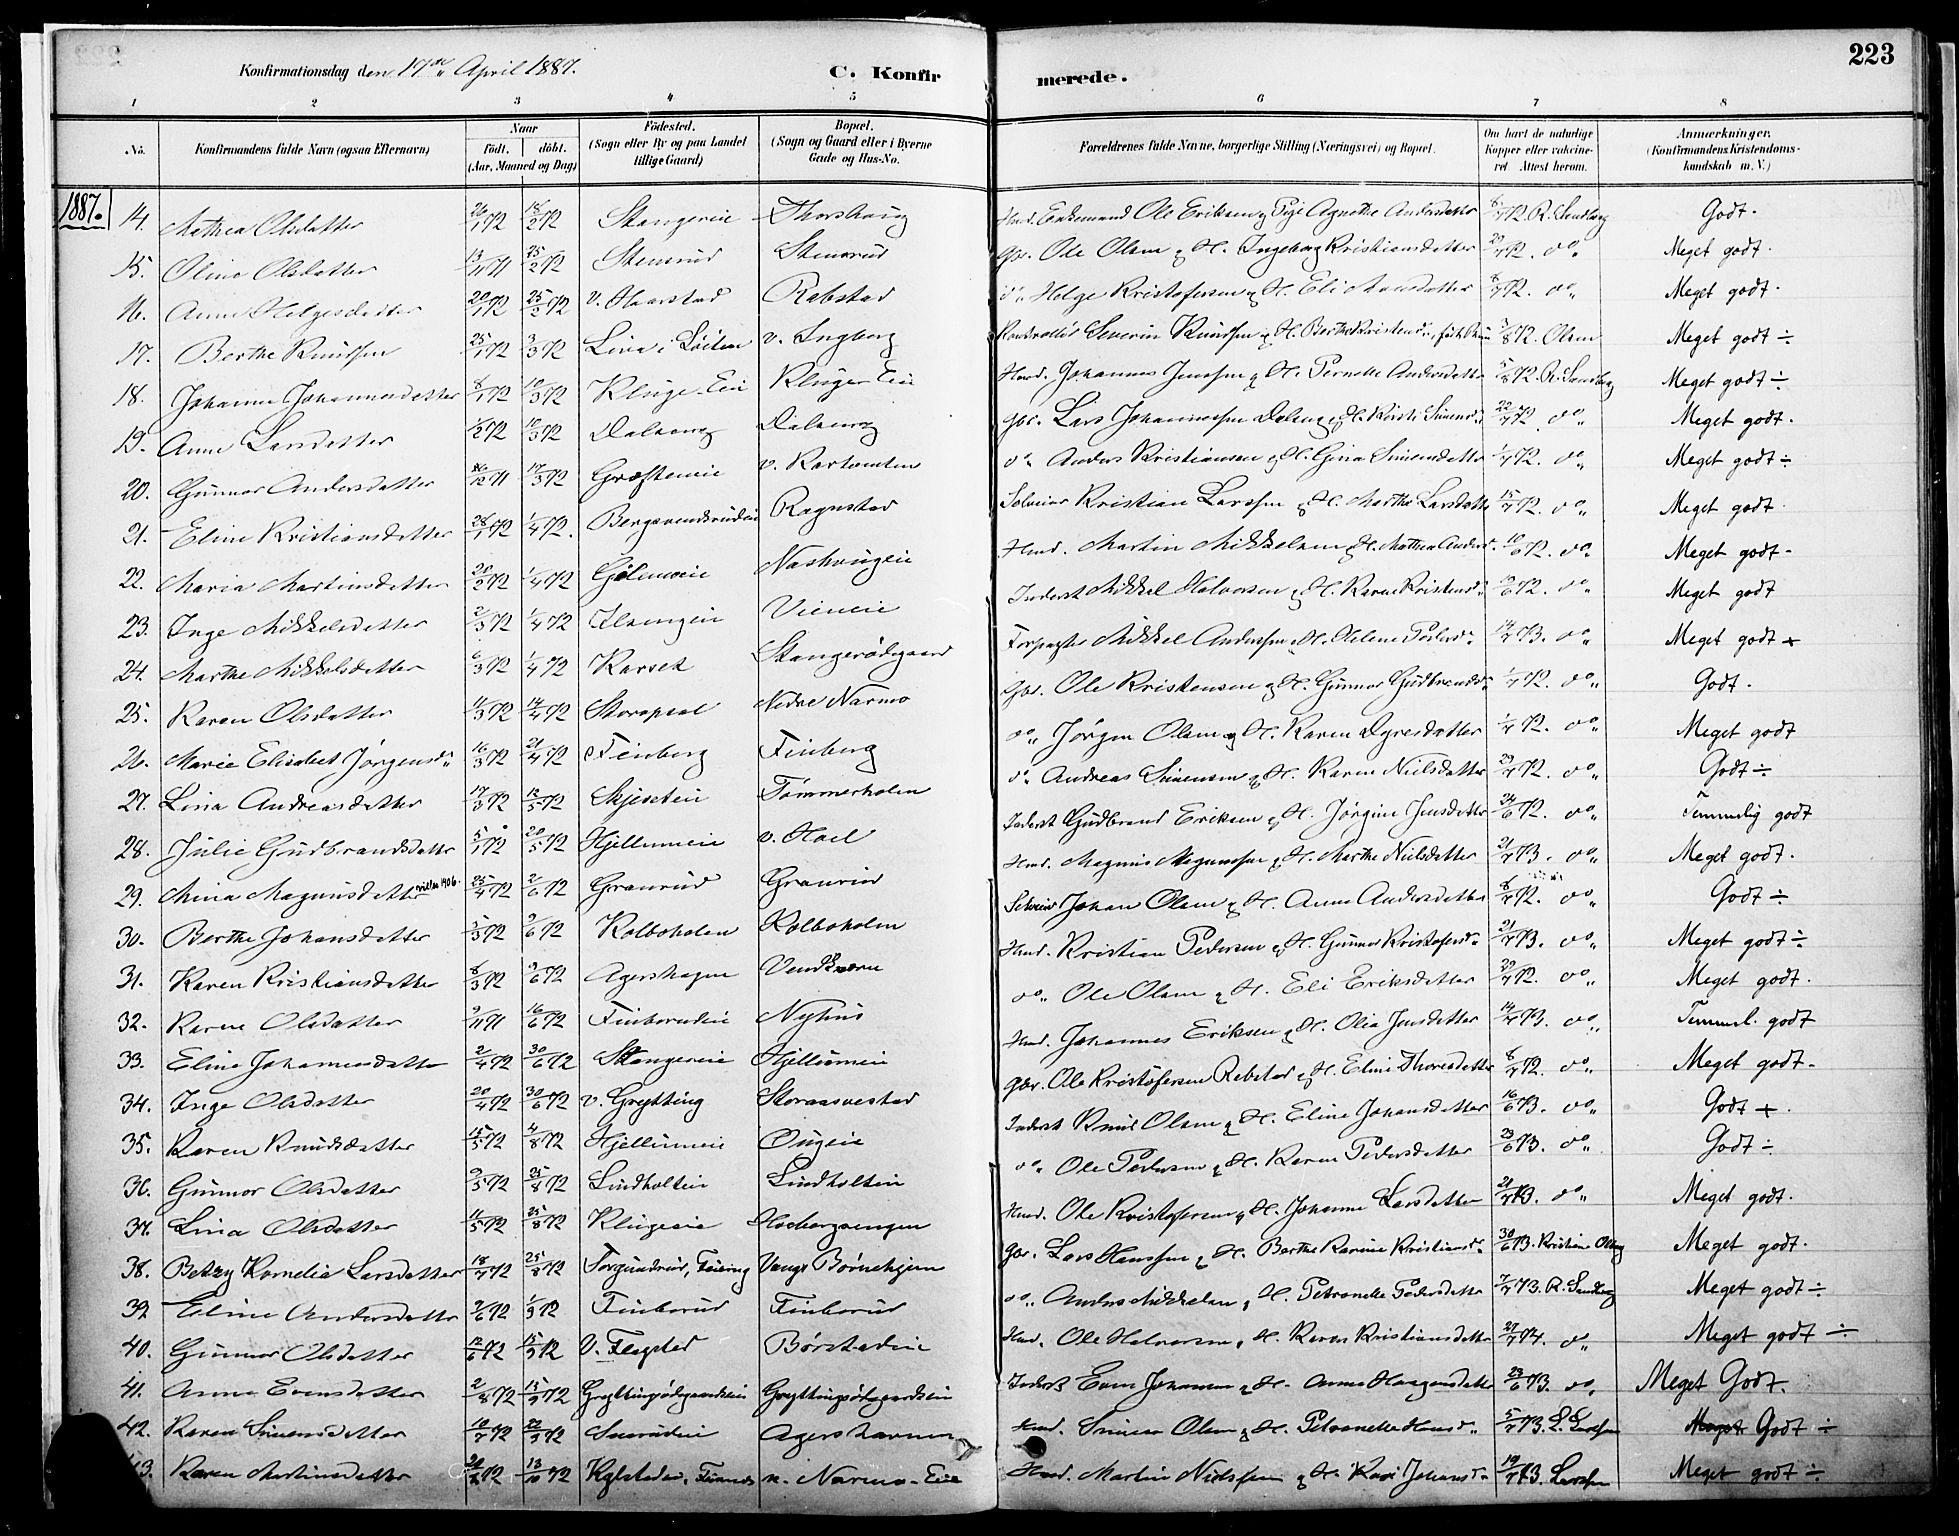 223
Konfirmationsdag den 17de April 1887.
C. Konfirmerede.
1 2 3 4 5 6 7 8
No. Konfirmandens fulde Navn (ogsaa Efternavn) Naar Født. døbt. (Aar, Maaned og Dag) Fødested. (Sogn eller By og paa Landet tillige Gaard) Bopæl. (Sogn og Gaard eller i Byerne Gade og Hus-No. Forældrenes fulde Navne, borgerlige Stilling (Næringsvei) og Bopæl. Om havt de naturlige Kopper eller vakcineret Attest herom. Anmærkninger. (Konfirmandens Kristendomskundskab m. V.)
1887.
14. Mathea Olsdatter 26/1 72 18/2 72 Stangereie Thorshoug Hmd. Enkemand Ole Eriksen & Pige Agnethe Andersdatter 6/7 72. R. Sandberg Godt.
15. Oline Olsdatter 13/11 71 25/2 72 Stensrud Stensrud Gbr. Ole Olsen & H. Ingeborg Kristiansdatter 20/7 72. do Meget godt.
16. Anne Helgesdatter 20/1 72 25/2 72 v. Haarstad Rabstad do Helge Kristofersen & H. Eli 8/7 72. do Meget godt.
17. Berthe Knudsen 25/1 72 3/3 72 Løiten v. Ingberg Severin Knudsen & H. Berthe 3/8 72. Olsen Meget godt ÷
18. Johanne Johannesdatter 8/1 72 10/3 72 Kluge-Eie Kluge-Eie Hmd. Johannes Jensen & H. Pernelle Andersdatter 5/8 72. R. Sandberg Meget godt ÷
19. Anne Larsdatter 1/2 72 10/3 72 Dalseng Dalseng Gbr. Lars Johannessen Dalseng & H. Kristi Simensd. 22/7 72 do Meget godt.
20. Gunnor Andersdatter 26/12 71 17/3 72 v. Kortomten do Anders Kristiansen & H. Gina Simensdatter 1/7 72. do Meget godt ÷
21. Eline Kristiansdatter 28/1 72 1/4 72. Bergsvendsrudeie Ragnstad Selveier Kristian Larssen & H. Marthe Larsdatter 15/7 72. do Meget godt.
22. Maria Martinsdatter 20/2 72 1/4 72 Naskougeie Hmd. Martin Mikkelsen & H. Mathea Andersd. 10/6 72. do Meget godt.
23. Inge Mikkelsdatter 2/3 72 1/4 72 Vieneie Inderst Mikkel Halvorsen & H. Karen Kristensd. 10/6 72. do Meget godt
24. Marthe Mikkelsdatter 6/3 72 1/4 72 Karset Stangerødegaard Forpagter Mikkel Anderssen & H. Helene Pedersd. 14/7 73. do Meget godt +
25. Karen Olsdatter 11/3 72 14/4 72 Nedre Narmo Gbr. Ole Kristensen & H. Gunnor Gudbrandsd. 1/7 72. do Godt.
26. Marie Elisabet Jørgensd. 16/3 72 21/4 72 Finberg Finberg do Jørgen Olsen & H. Karen 1/7 72. do Meget godt
27. Lina Andreasdatter 17/3 72 12/5 72 Skjeseteie Tømmerholen do Andreas Simensen & H. Karen Nielsdatter 23/7 72. do Godt ÷
28. Julie Gudbrandsdatter 5/1 72 20/5 72 Hjellumeie v. Hoel Inderst Gudbrand Eriksen & H. Jørgine Jensdatter 24/6 72. do Temmelig godt
29. Mina Magnusdatter viet 1906. 25/4 72 2/6 72 Granrud Granrud Hmd. Magnus Magnussen & H. Marthe Nielsdatter 21/7 73. do Meget godt.
30. Berthe Johansdatter 5/3 72 9/6 72 Kolboholen Kolboholen Selveier Johan Olsen & H. Anne Andersdatter 8/7 72. do Godt ÷
31. Karen Kristiansdatter 8/3 72 9/6 72 Agershagen Vendkværn Hmd. Kristian Pedersen & H. Gunnor Kristofersd. 21/7 73. do Meget godt ÷
32. Karen Olsdatter 9/11 71 16/6 72 Finborudeie Nyhus do Ole Olsen & H. Eli Eriksdatter 29/7 72. do Meget godt.
33. Eline Johannesdatter 2/4 72 30/6 72 Stangereie Hjellumeie Hmd. Johannes Eriksen & H. Olia Jensdatter 14/7 73. do Temmel. godt
34. Inge Olsdatter 20/4 72 30/6 72 v. Grytting Storaasvestad Gbr. Ole Kristofersen Rabstad & H. Eline Thoresdatter 8/7 72. do Meget godt.
35. Karen Knudsdatter 15/5 72 4/8 72 Hjellumeie Ougeie Inderst Knud Olsen & H. Eline Johansdatter 16/6 73. do Godt +.
36. Gunnor Olsdatter 9/5 72 25/8 72 Lindholteie Lindholteie do Ole Pedersen & H. Karen Pedersdatter 23/6 73. do Godt ÷
37. Lina Olsdatter 11/5 72 25/8 72 Klugeeie Hoebergsengen Hmd. Ole Kristofersen & H. Johanne Larsdatter 21/7 73. do Meget godt.
38. Betzy Kornelia Larsdatter 18/7 72 25/8 72 Torgundrud, Feiring Vangs Børnehjem Gbr. Lars Hanssen & H. Berthe Karine Kristiansd. 30/6 73. Kristine Meget godt.
39. Eline Andersdatter 2/6 72 1/9 72 Finborud Finborud do Anders Mikkelsen & H. Petronelle Pedersdatter 7/7 73. R. Sandberg Meget godt ÷
40. Gunnor Olsdatter 12/6 72 15/9 72 V. Flagstad Børstadeie Hmd. Ole Halvorsen & H. Karen Kristiansdatter 27/7 74. do Meget godt ÷
41. Anne Evensdatter 2/8 72 15/9 72 Gryttingsødegaardseie Gryttingsødegaardseie Inderst Even Johansen & H. Anne Haagensdatter 23/6 73. do Meget Godt.
42. Karen Simensdatter 10/7 72 22/9 72 Snerudeie Hmd. Simen Olsen & H. Petronelle Hansd. 5/7 73. L. Larssen Godt ÷
43. Karen Martinsdatter 21/8 72 13/10 72 n. Narmo-Eie Hmd. Martin Nielssen & H. Kari Johansd. 19/7 73. Larssen Meget godt ÷